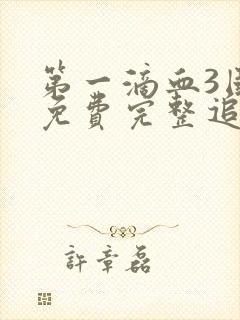 第一滴血3
免费完整追
許章磊